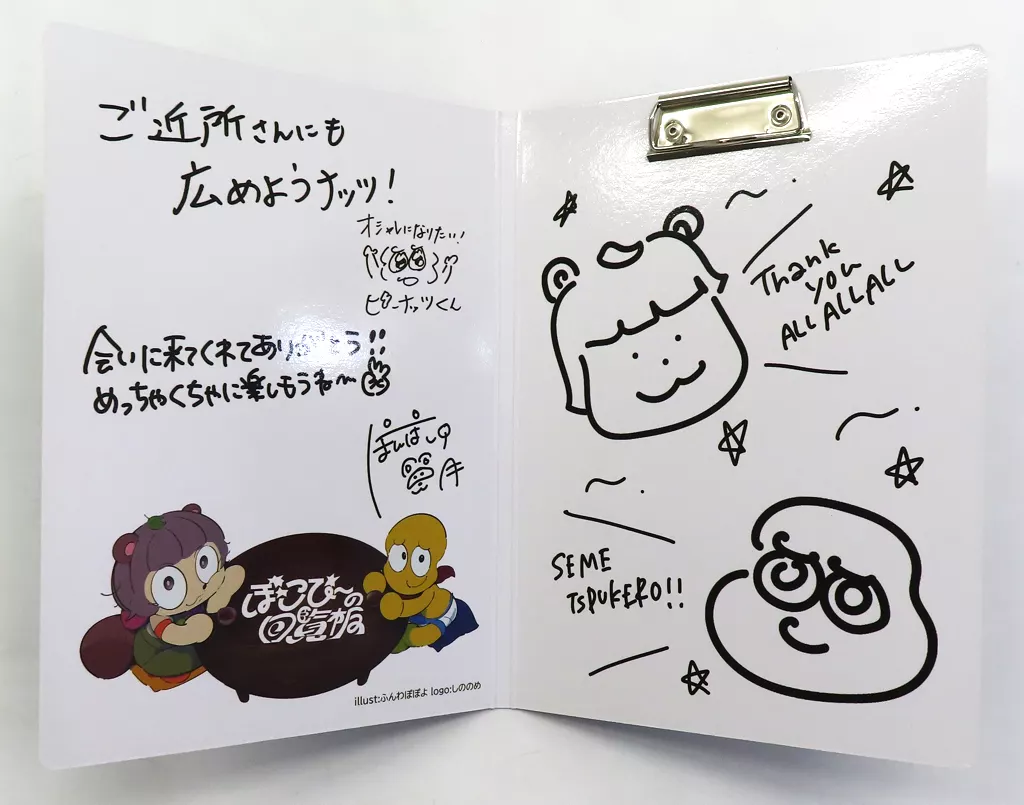 ご近所さんにも
広めようナッツ!
オシャレになりたい!
ピーナッツくん
会いに来てくれてありがとう!!
めっちゃくちゃに楽しもうね〜
ぽんぽこ
ぽこピーの
回覧板
illust:ふんわぽぽよ logo:しののめ
Thank
you
ALL ALL ALL
SEME
TSPUKERO!!